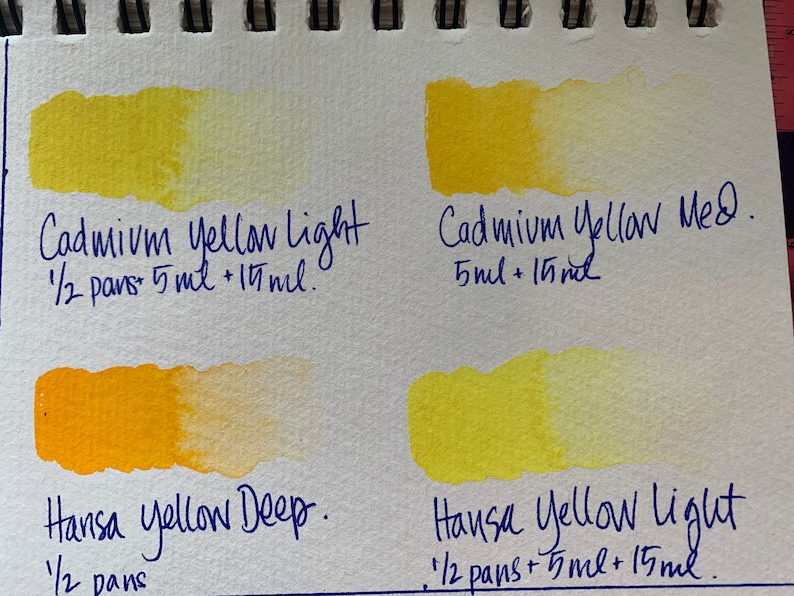 Cadmium Yellow Light
1/2 pans + 5ml + 15ml.
Cadmium Yellow Med.
5ml + 15ml
Hansa Yellow Deep.
1/2 pans
Hansa Yellow Light
1/2 pans + 5ml + 15ml.